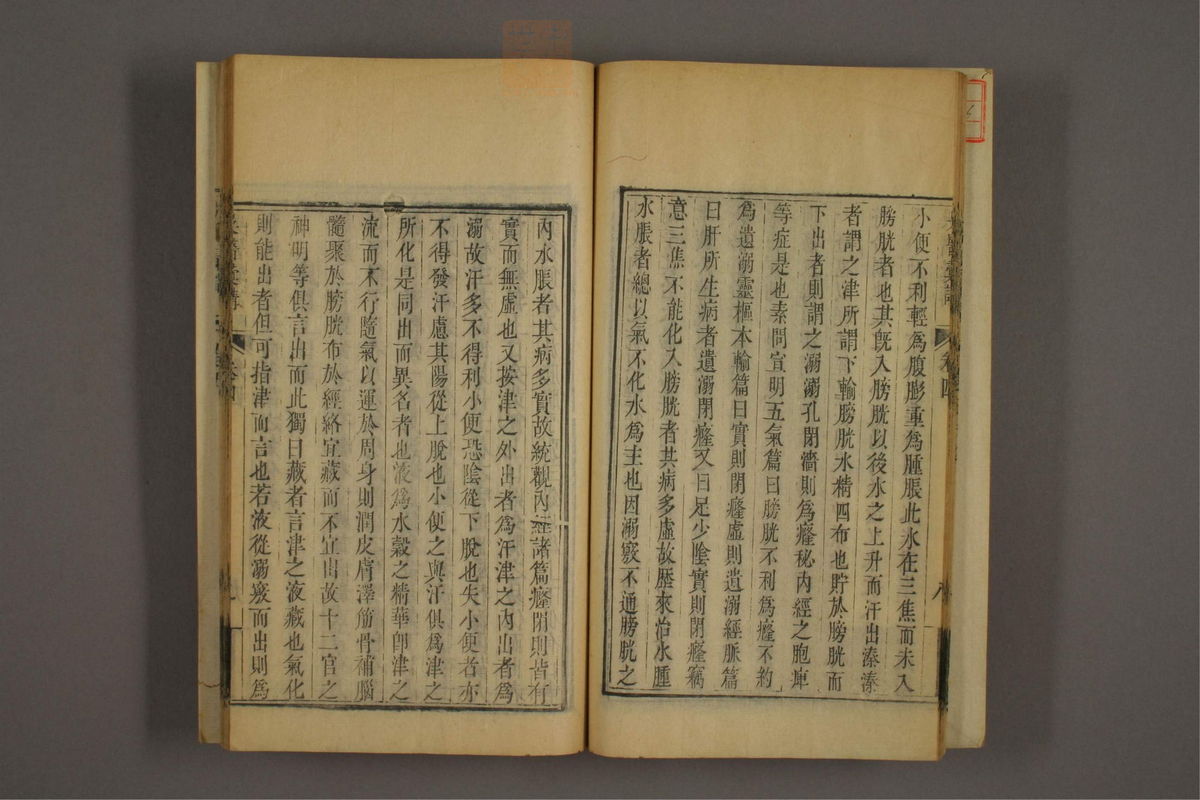 小便不利輕為腹膨重為腫脹此水在三焦而未入
膀胱者也其旣入膀胱以後水之上升而汗出溱溱
者謂之津所謂下輸膀胱水精四布也貯於膀胱而
下出者則謂之溺溺孔閉濇則為癃秘內經之胞𤵬
等症是也素問宣明五氣篇曰膀胱不利為癃不約
為遺溺靈樞本輸篇曰實則閉癃虛則遺溺經脈篇
曰肝所生病者遺溺閉癃又曰足少陰實則閉癃竊
意三焦不能化入膀胱者其病多虛故歷來治水腫
水脹者總以氣不化水為主也因溺竅不通膀胱之
卷四
八
內水脹者其病多實故統觀內經諸篇癃閉則皆有
實而無虛也又按津之外出者為汗津之內出者為
溺故汗多不得利小便恐陰從下脫也失小便者亦
不得發汗慮其陽從上脫也小便之與汗俱為津之
所化是同出而異名者也液為水穀之精華卽津之
流而不行隨氣以運於周身則潤皮膚澤筋骨補腦
髓聚於膀胱布於經絡宜藏而不宜出故十二官之
神明等俱言出而此獨曰藏者言津之液藏也氣化
則能出者但可指津而言也若液從溺竅而出則為